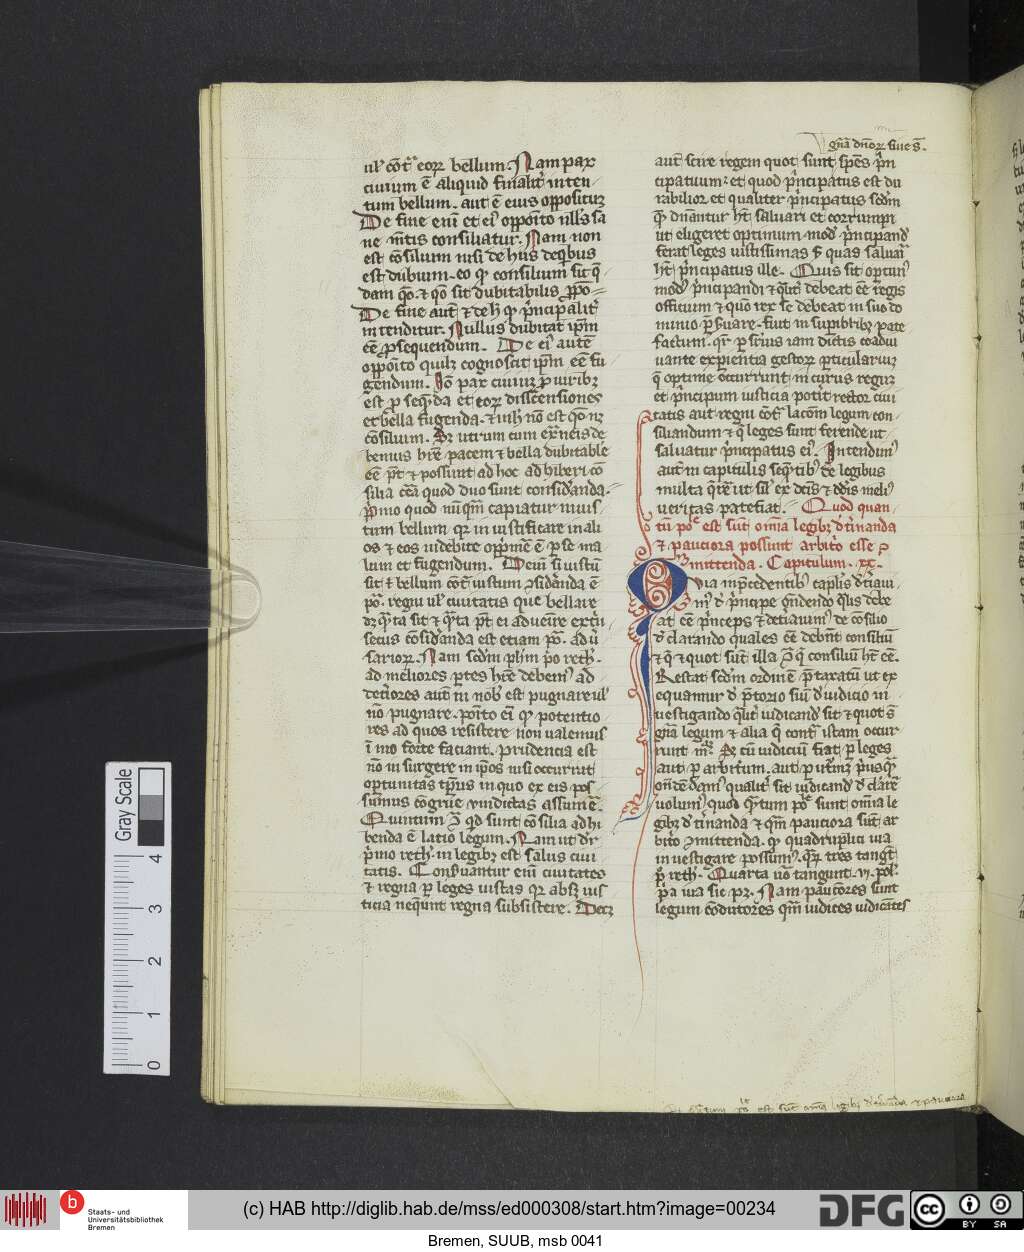 ul' cōt̄ eoꝝ bellum. Nam pax
ciuium ē aliquid finalit̄ inten
tum bellum. aut ē eius oppositū
De fine enī et ei oppoīto nlls sa
ne mētis consiliatur. Nam non
est cōsilium nisi de hiis de qͥbus
est dubium. eo qꝫ consilium sit q̄
dam qo. ⁊ qo sit dubitabilis ꝓpo
De fine aut̄ ⁊ de hͦ qꝫ pͥncipalit̄
intenditur. Nullus dubitat ipm
eē ꝓsequendum. De eiꝰ autē
oppoīto quilꝫ cognoscit ipm eē fu
giendum. Iō pax ciuiū ꝓ uiribꝫ
est ꝓseqͣnda et eoꝝ dissensiones
et bella fugienda. ⁊ in hͦ nō est
cōsilium. Sꝫ utrum cum extͣneis de
beamus hr̄e pacem ⁊ bella dubitabile
eē pt̄ ⁊ possunt ad hoc adhiberi cō
silia circa quod duo sunt considͣanda.
pͥmo quod nūqͣm capiatur inius
tum bellum qꝛ iniustificare in ali
os ⁊ eos indebite oppͥmē ē ꝑ se ma
lum et fugiendum. Dein si iustū
sit ⁊ bellum cōt̄ iustum ↄsidͣanda ē
po. regni ul' ciuitatis que bellare
dꝫ qͣnta sit ⁊ qͣnta pt̄ ei aduenire extͥ
secus cōsidͣanda est etiam po. aduͥ
sarioꝝ. Nam scdm phm pͥo reth'.
ad meliores ꝑtes hr̄e debemꝰ ad
detͥores autē in nob est pugnare ul'
nō pugnare. poīto eī qꝫ potentio
res ad quos resistere non ualemus
īmo forte faciant. prudencia est
nō insurgere in ipōs nisi occurrat
optunitas tp̄ris in quo ex eis pos
sumus cōgrue vindictas assumē.
Quintum ↄ qd sunt cōsilia adhi
benda ē latio legum. Nam ut dr̄
pͥmo reth'. in legibꝫ est salus ciui
tatis. Conseruantur enī ciuitates
⁊ regna ꝑ leges iustas qꝛ absqꝫ ius
ticia nequnt regna subsistere. Decꝫ
gn̄a dn̄oꝝ siue s̄.
aut scire regem quot sunt spēs pͥn
cipatuum. et quod pͥncipatus est du
rabilior et qualiter pͥncipatus scdm
qꝫ dn̄antur hn̄t saluari et corrumpi
ut eligeret optimum modū pͥncipandi
ferat leges iustissimas ꝑ quas saluari
ht̄ pͥncipatus ille. Quis sit optimꝰ
modꝰ pͥncipandi ⁊ qͣlit̄ debeat eē regis
officium ⁊ quō rex se debeat in suo do
minio ꝑseuare. fuit in suꝑiͦribꝫ pate
factum. qr̄ ꝑ sꝑius iam dictis coadiu
uante exꝑientia gestoꝝ ꝑticularium
q̄ optime occurrunt in curiis regum
et pͥncipum iusticia potit rector ciui
tatis aut regni cōt̄ lacōm legum con
siliandum ⁊ q̄ leges sunt ferende ut
saluatur pͥncipatus eiꝰ. Intendimꝰ
autē in capitulis seqͣntibꝰ de legibus
multa qͣrere ut sil' ex dcīs ⁊ ddīs meliꝰ
ueritas patefiat. Quod quan
tū poͤ est sūt omīa legibꝫ dͤtͥinanda
⁊ pauciora possunt arbitͥo esse ↄ
mittenda. Capitulum. xx.
Quia in pͥcedentibꝰ capl'is dͤtͥiaui
mꝰ dͤ pͥncipe gn̄dendo qͣlis debe
at eē pͥnceps ⁊ detͥiauimꝰ de cōsilio
dͤclarando quales eē debn̄t consiliū
⁊ qͣ ⁊ quot sūt illa ↄ q̄ consiliū ht̄ eē.
Restat scdm ordinē pͥtaxatū ut ex
equamur dͤ pͥtorio siue dͤ iudicio in
uestigando qͣlit̄ iudicand' sit ⁊ quot s̄
gn̄a legum ⁊ alia q̄ contͣ istam occur
runt mā. Sꝫ cū iudiciū fiat ꝑ leges
aut ꝑ arbitͥum. aut ꝑ utͣmꝫ pͥusqͣꝫ
ondēdemꝰ qualit̄ sit iudicand' dͤclarē
uolumꝰ quod qͣntum poͤ sunt omīa le
gibꝫ dͤtͥinanda ⁊ qͣm pauciora sūt ar
bitͥo ↄmittenda. qꝫ quadruplici uia
inuestigare possumꝰ. qͣꝝ tres tangt̄
pͥo reth'. Quarta uō tangunt. vi. pol'.
pͥa uia sic pꝫ. Nam pauciores sunt
legum cōditores qͣm iudices iudicātes
poͤ est sūt omīa legibꝫ dͤtͥinanda ⁊ pauciora
Gray Scale
4
3
2
1
0
b
Staats- und
Universitätsbibliothek
Bremen
(c) HAB http://diglib.hab.de/mss/ed000308/start.htm?image=00234
DFG
cc
BY SA
Bremen, SUUB, msb 0041